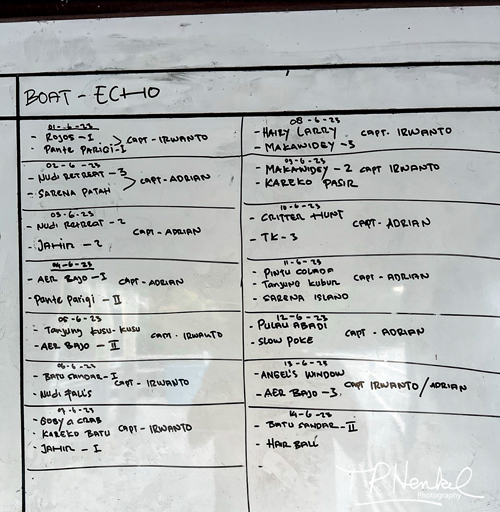 BOAT - ECHO
01-6-23
- ROJOS - I
- PANTE PARIGI - I
CAPT - IRWANTO
02-6-23
- NUDI RETREAT - 3
- SARENA PATAH
CAPT - ADRIAN
03-6-23
- NUDI RETREAT - 2
- JAHIR - 2
CAPT - ADRIAN
04-6-23
- AER BAJO - I
- PANTE PARIGI - II
CAPT - ADRIAN
05-6-23
- TANJUNG KUSU-KUSU
- AER BAJO - II
CAPT - IRWANTO
06-6-23
- BATU SANDAR - I
- NUDI FALLS
CAPT - IRWANTO
07-6-23
- GOBY A CRAB
- KAREKO BATU
- JAHIR - I
CAPT - IRWANTO
08-6-23
- HAIRY LARRY
- MAKAWIDEY - 3
CAPT. IRWANTO
09-6-23
- MAKAWIDEY - 2 CAPT IRWANTO
- KAREKO PASIR
10-6-23
- CRITTER HUNT
- TK - 3
CAPT - ADRIAN
11-6-23
- PINTU COLADA
- TANJUNG KUBUR
- SARENA ISLAND
CAPT - ADRIAN
12-6-23
- PULAU ABADI
- SLOW POKE
CAPT - ADRIAN
13-6-23
- ANGEL'S WINDOW
- AER BAJO - 3
CAPT IRWANTO / ADRIAN
14-6-23
- BATU SANDAR - II
- HAIR BALL
-
Photography